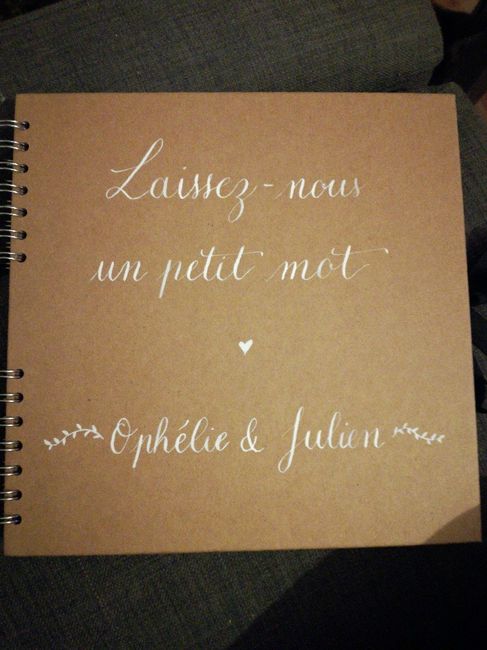 Laissez-nous
un petit mot
Ophélie & Julien